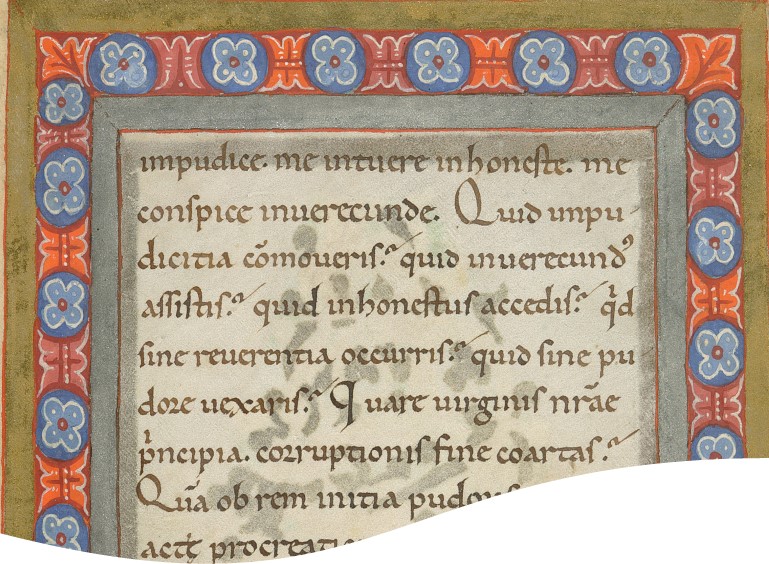 impudice. me intuere inhoneste. me
conspice inuerecunde. Quid impu-
dicitia cōmoueris? quid inuerecundꝰ
assistis? quid inhonestus accedis? qͥd
sine reuerentia occurris? quid sine pu
dore uexaris? Quare uirginis nr̄ae
pͥncipia. corruptionis fine coartas?
Quā ob rem initia